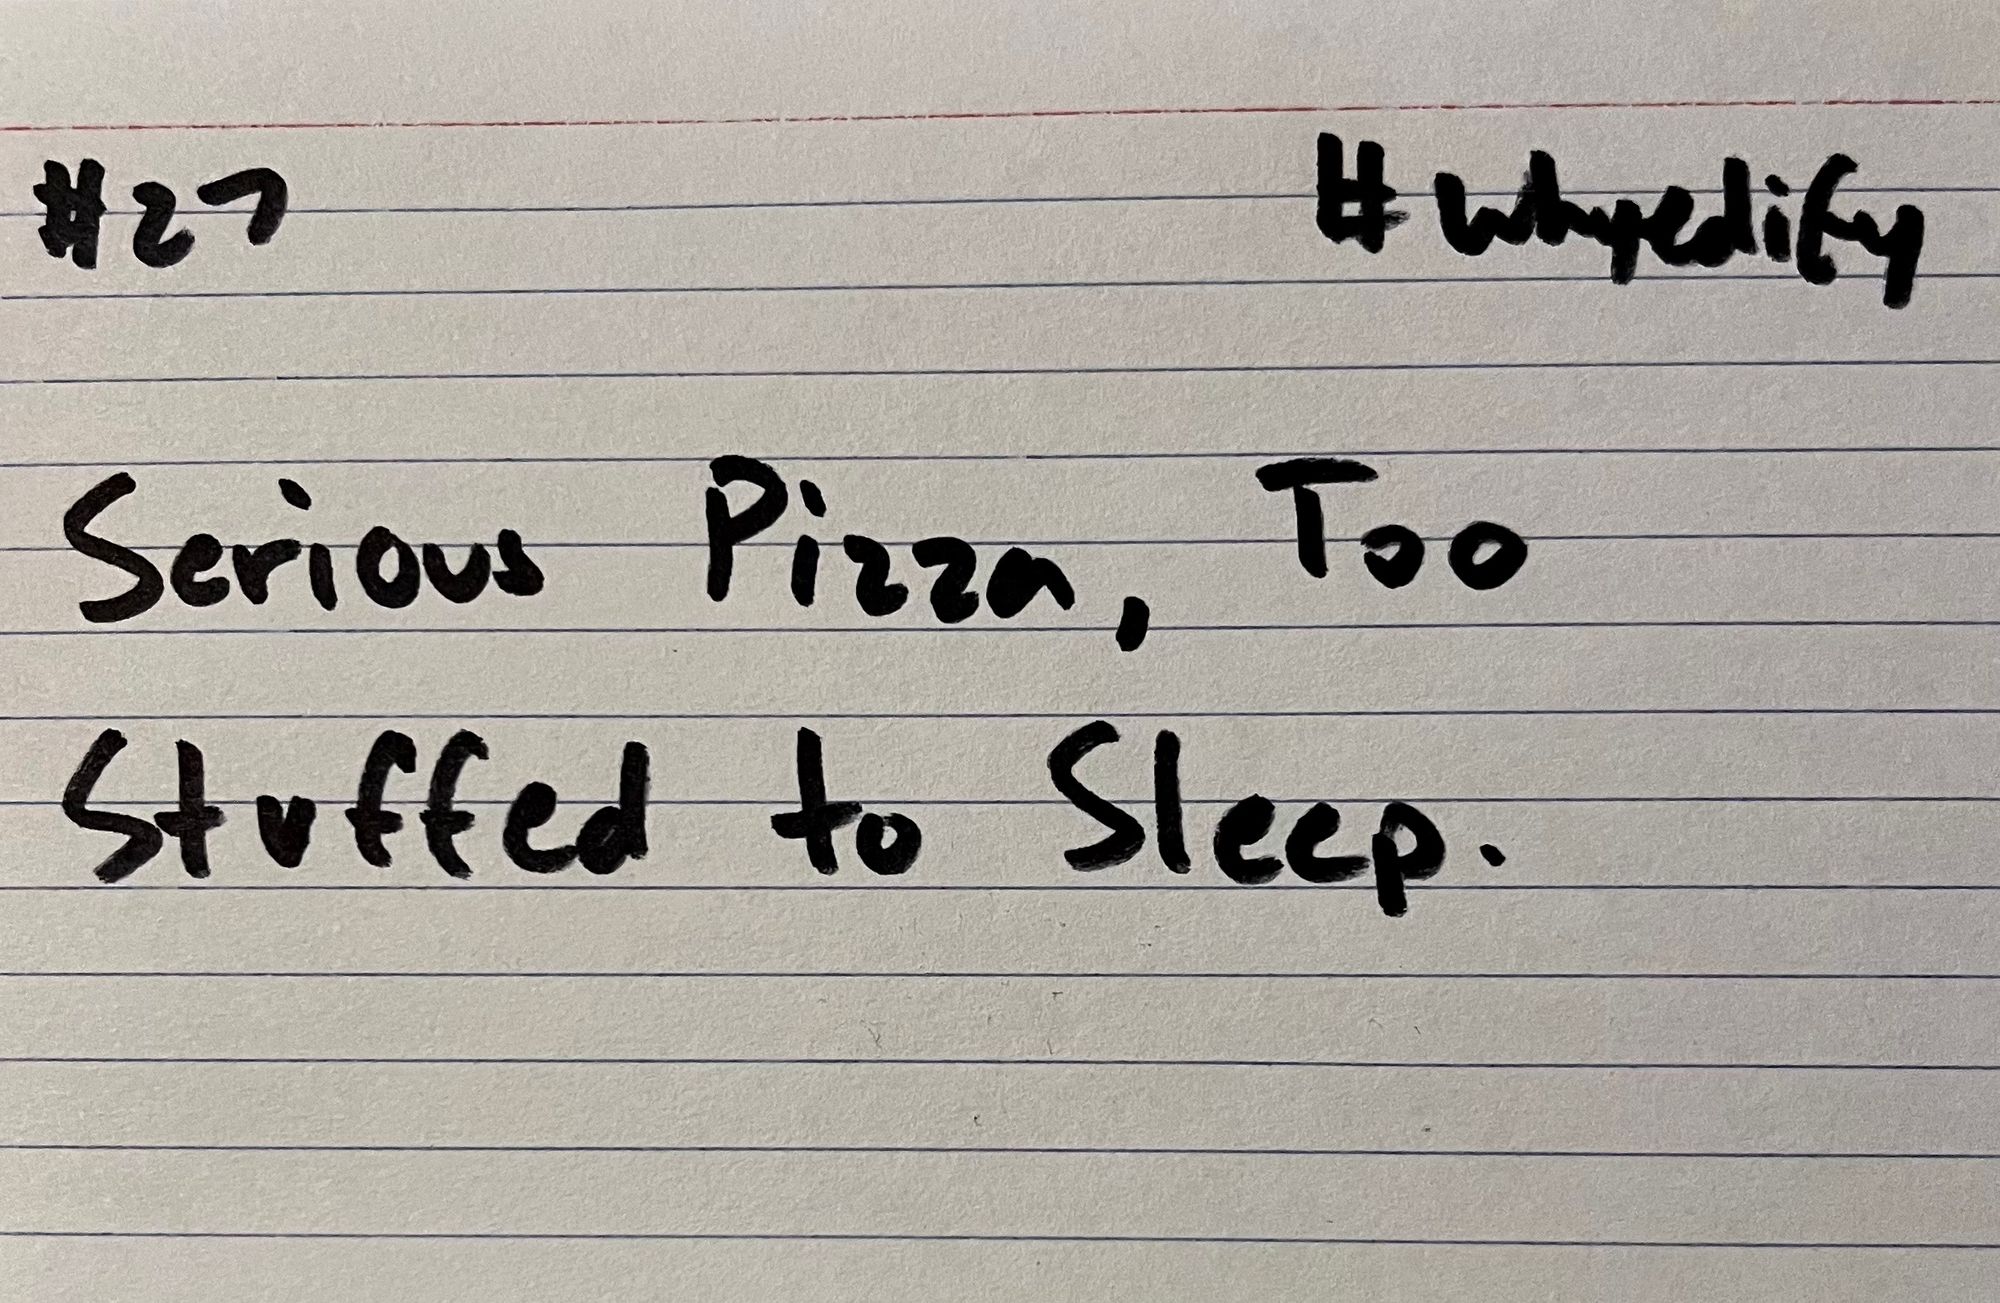 #27 #whyedify
Serious Pizza, Too
Stuffed to Sleep.